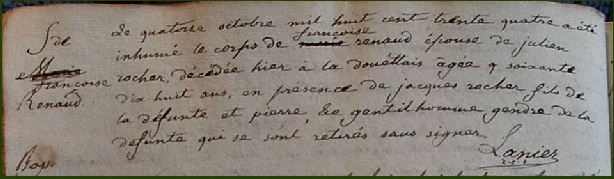 S de
Marie
françoise
Renaud
Le quatorze octobre mil huit cent trente quatre a été
inhumé le corps de marie françoise renaud épouse de julien
rocher, décédée hier à la douettais âgée de soixante
dix huit ans, en présence de jacques rocher fils de
la défunte et pierre Le gentilhomme gendre de la
defunte qui se sont retirés sans signer
Lanier
Bap.